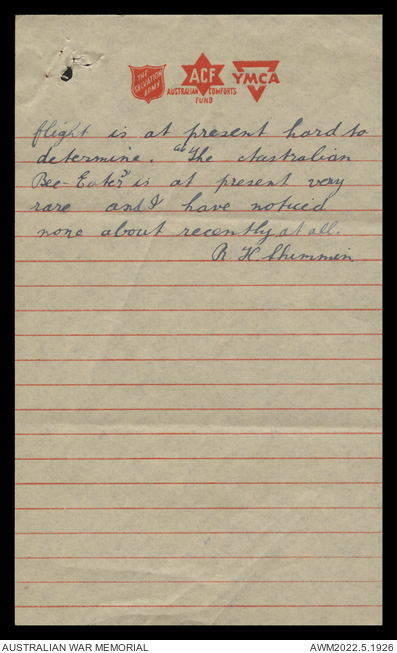 THE
SALVATION
ARMY
ACF
AUSTRALIAN COMFORTS
FUND
YMCA
flight is at present hard to
determine. "The Australian
Bee-Eater" is at present very
rare and I have noticed
none about recently at all.
R H Shimmin
AUSTRALIAN WAR MEMORIAL
AWM2022.5.1926